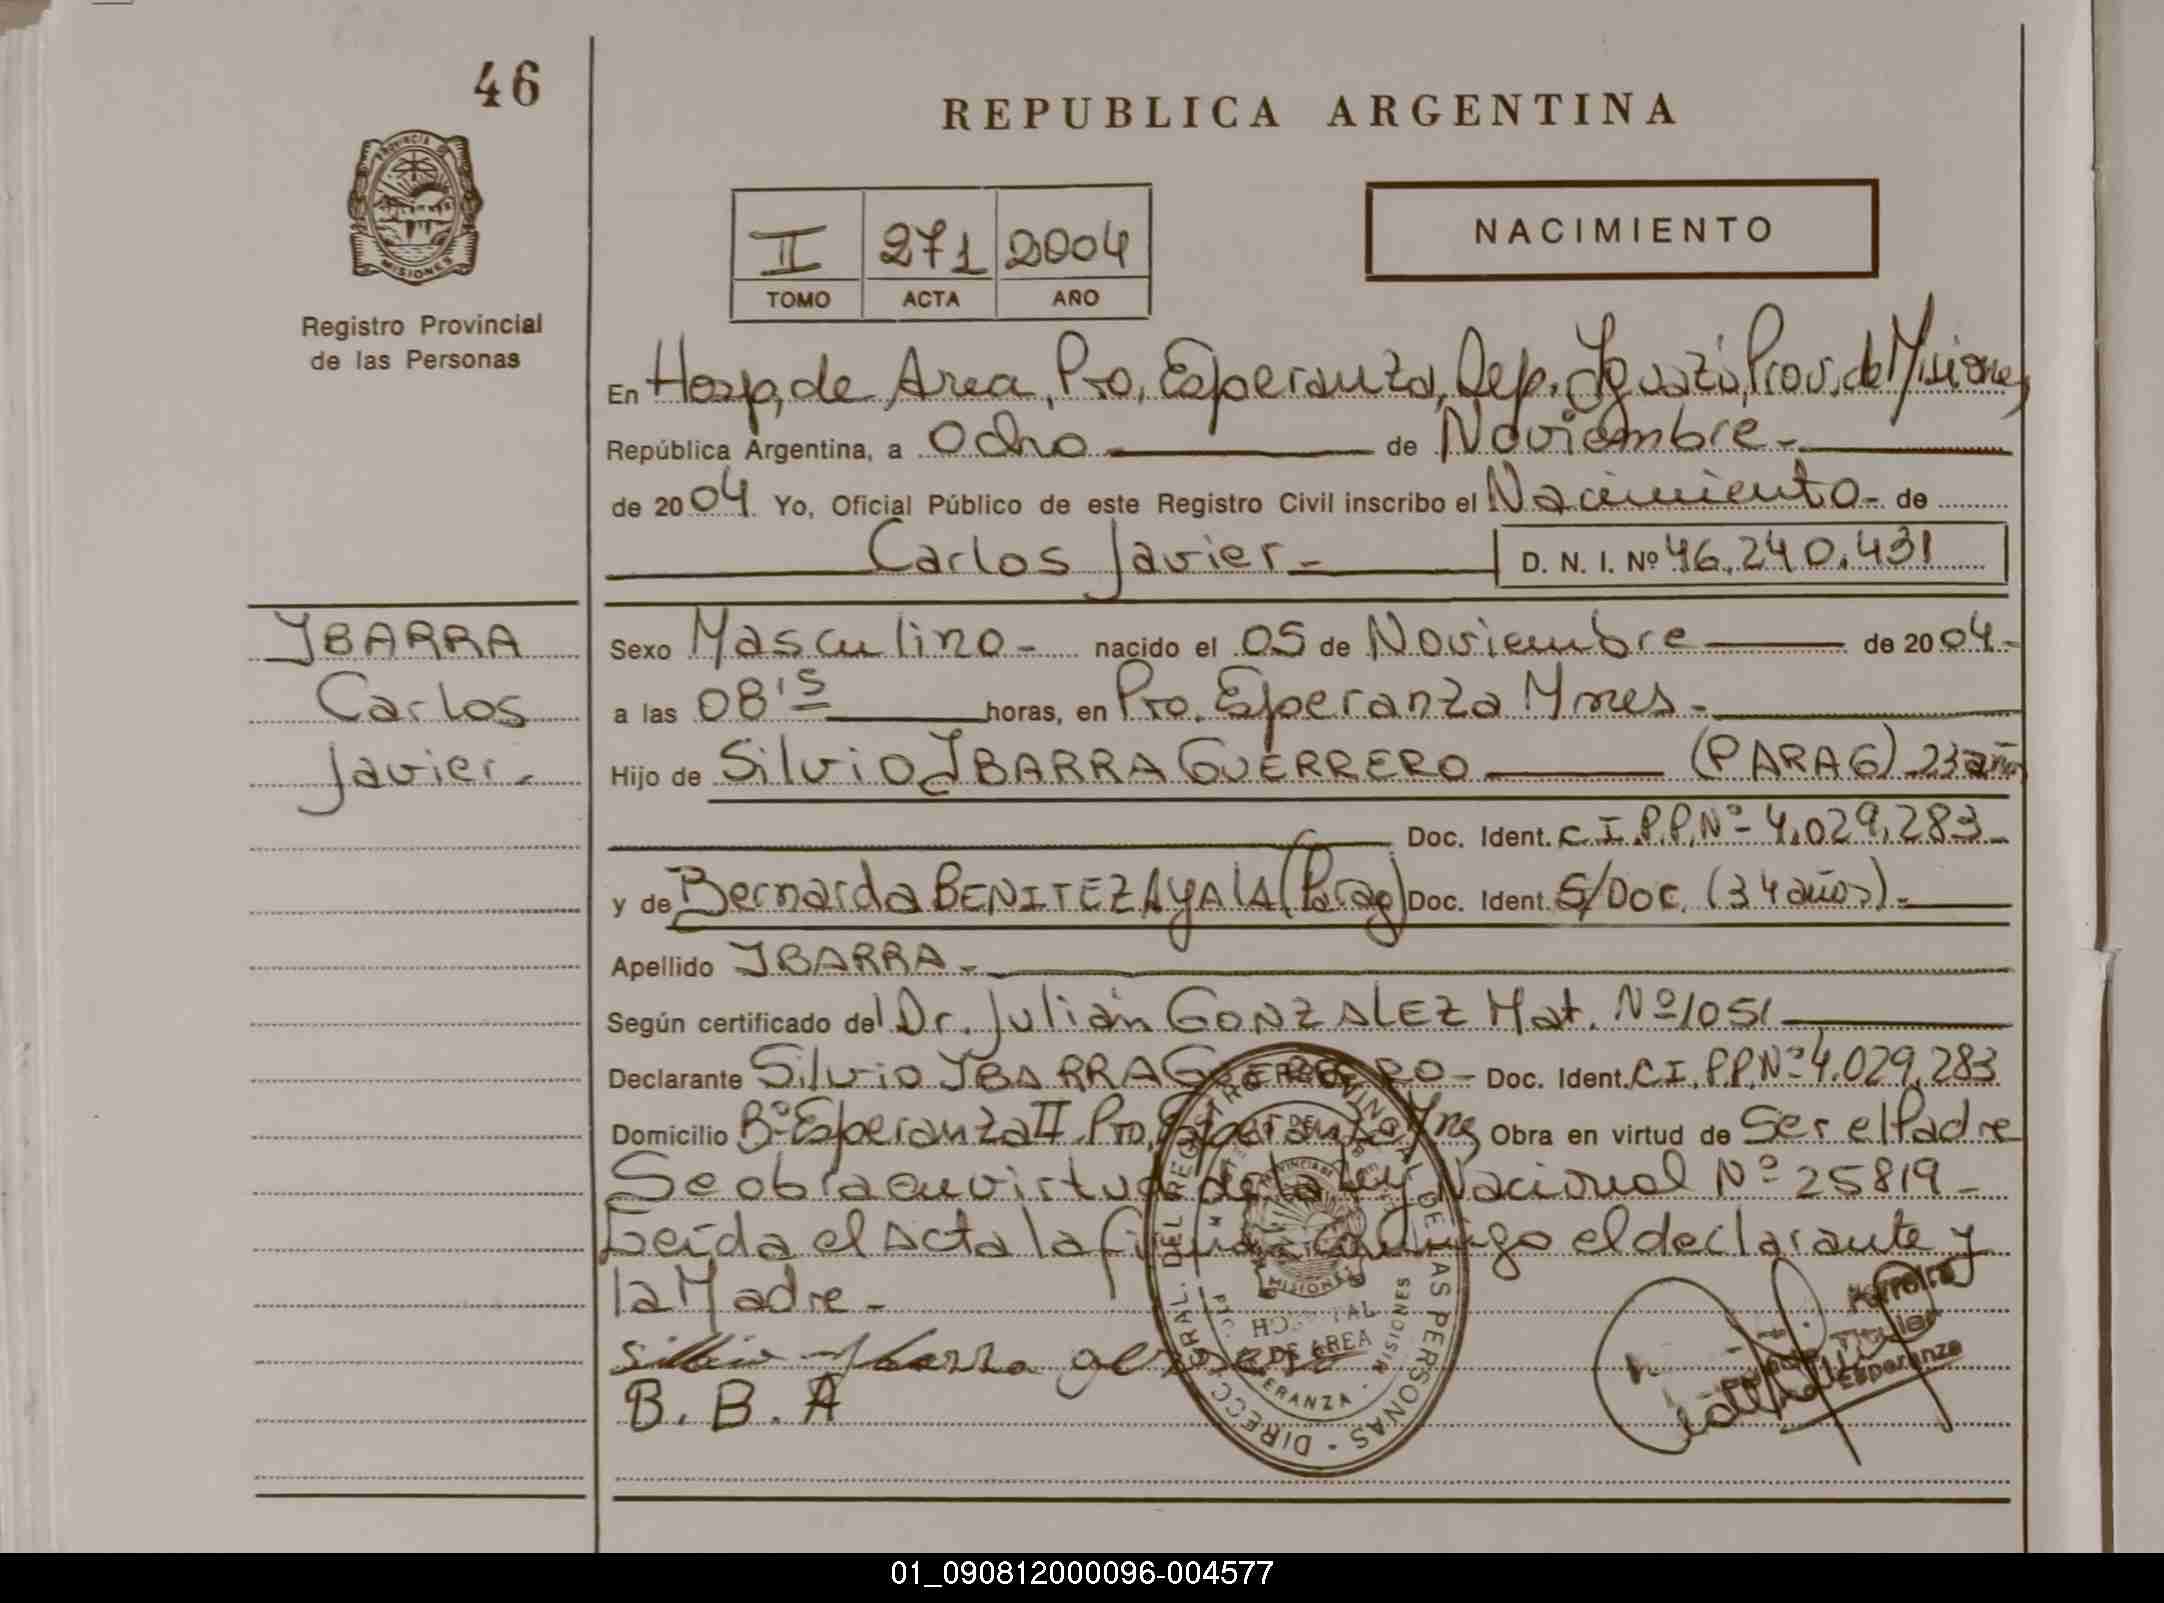 46
REPUBLICA ARGENTINA
PROVINCIA DE
MISIONES
Registro Provincial
de las Personas
II 271 2004
TOMO ACTA AÑO
NACIMIENTO
En Hosp, de Area, Pto, Esperanza, Dep. Iguazú, Prov. de Misiones
República Argentina, a Ocho de Noviembre -
de 2004 Yo, Oficial Público de este Registro Civil inscribo el Nacimiento - de
Carlos Javier - D. N. I. Nº 46.240.431
IBARRA
Carlos
Javier -
Sexo Masculino - nacido el 05 de Noviembre de 2004.-
a las 08'15 horas, en Pto. Esperanza Mnes -
Hijo de Silvio IBARRA GUERRERO (PARAG) 23 años
Doc. Ident. C.I.P.P. Nº 4.029.283 -
y de Bernarda BENITEZ AYALA (Parag) Doc. Ident. S/Doc. (34 años) -
Apellido IBARRA -
Según certificado del Dr. Julián GONZALEZ Mat. Nº 1051
Declarante Silvio IBARRA GUERRERO - Doc. Ident. C.I.P.P. Nº 4.029.283
Domicilio Bº Esperanza II Pto, Esperanza Mns Obra en virtud de Ser el Padre
Se obra en virtud de la Ley Nacional Nº 25819 -
Leída el Acta la firma conmigo el declarante y
la Madre -
silvio ybarra gerrero
B. B. A
DIRECC. GRAL. DEL REGISTRO PROVINCIAL DE LAS PERSONAS
HOSPITAL
DE AREA
ESPERANZA - MISIONES
MISIONES
Ferreira
Titular
Esperanza
01_090812000096-004577